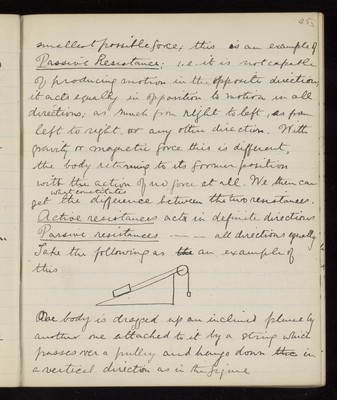 253
smallest possible force, this is an example of
Passive Resistance; i.e it is not capable
of producing motion in the opposite direction,
it acts equally in opposition to motion in all
directions, as much from right to left, as from
left to right or any other direction. With
gravity or magnetic force this is different,
the body returning to its former position
with the action of no force at all. We then can
what constitutes
get the difference between the two resistances.
Active resistances acts in definite directions
Passive resistances — — — all directions equally
Take the following as the an example of
this
One body is dragged up an inclined plane by
another one attached to it by a string which
passes over a pulley and hangs down in
a vertical direction as in the figure